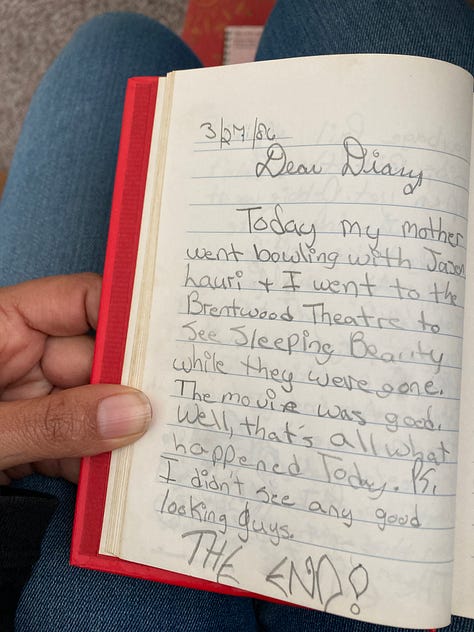 3/27/86
Dear Diary
Today my mother
went bowling with Jason
hauri + I went to the
Brentwood Theatre to
See Sleeping Beauty
while they were gone.
The movie was good.
Well, that's all what
happened Today. P.S.
I didn't see any good
looking guys.
THE END!